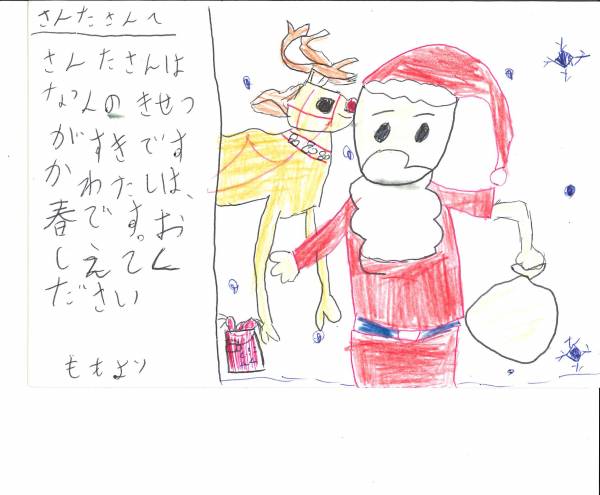 さんたさんへ
さんたさんは
なんの きせつ
がすきです
か わたしは、
春です。お
しえてく
ださい
ももより